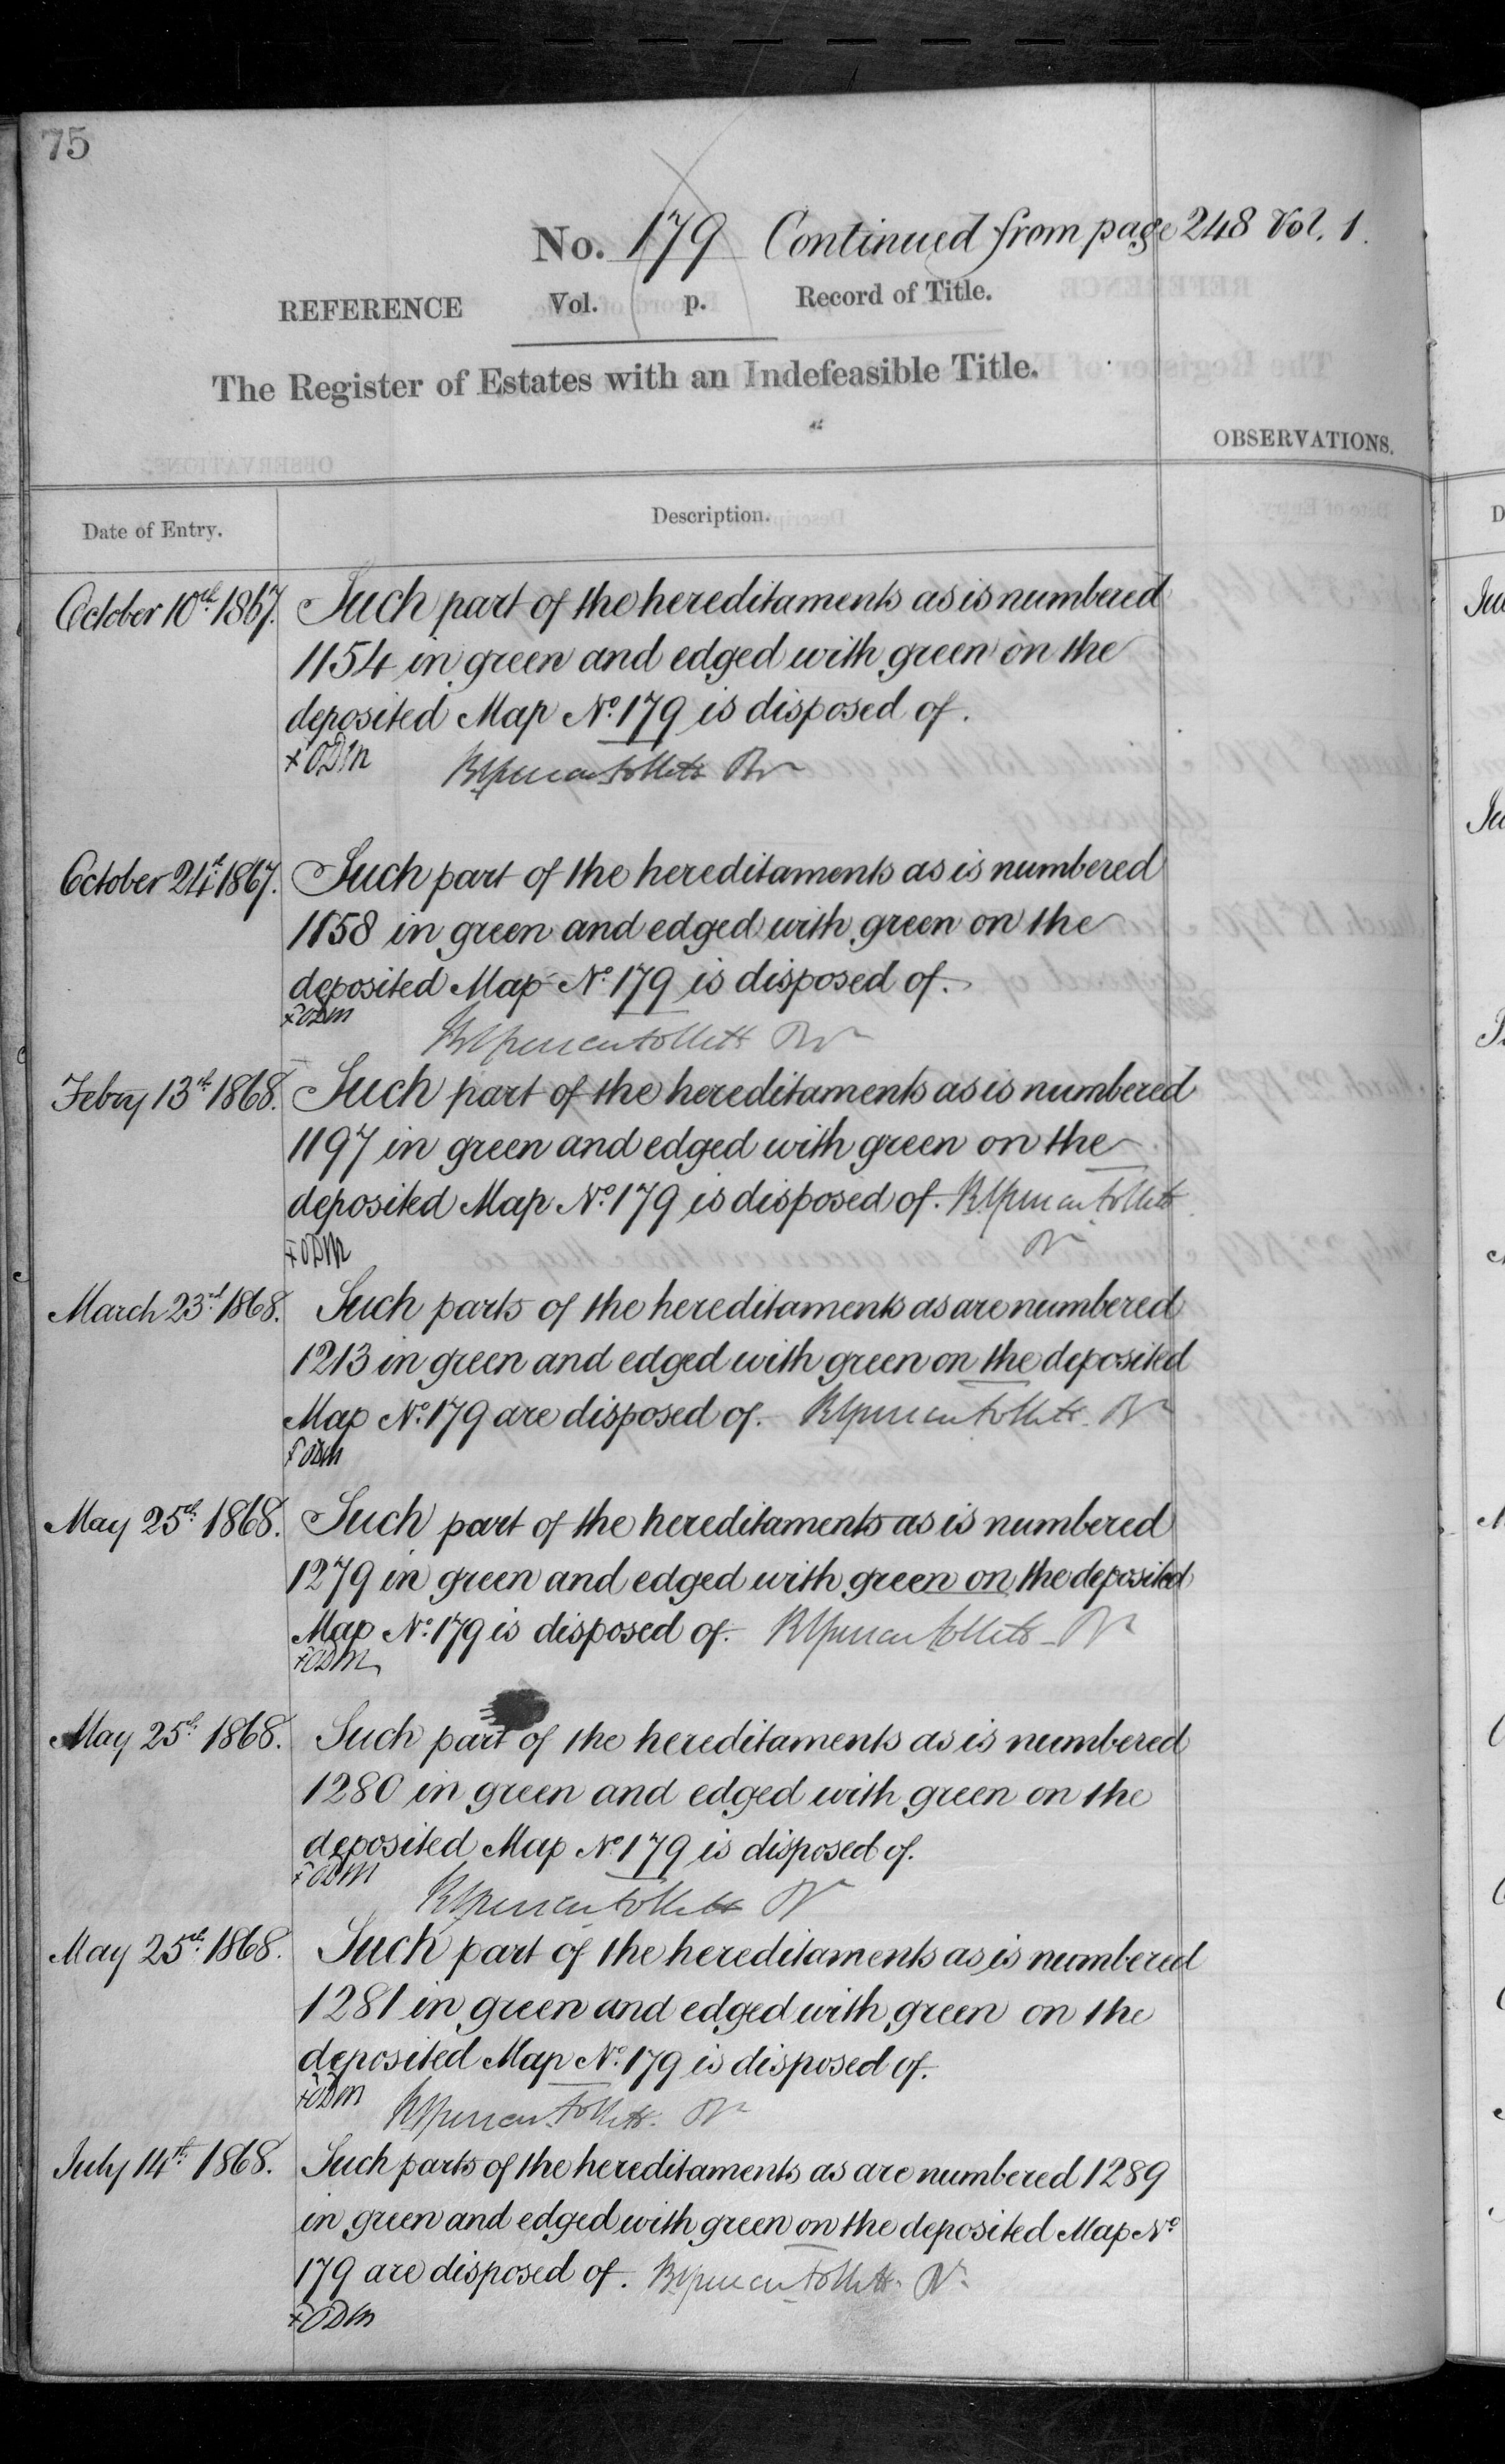 75
No. 179 Continued from page 248 Vol. 1.
REFERENCE Vol. p. Record of Title.
The Register of Estates with an Indefeasible Title.
OBSERVATIONS.
Date of Entry. Description.
October 10th 1867. Such part of the hereditaments as is numbered
1154 in green and edged with green on the
deposited Map No. 179 is disposed of.
+ODM
October 24th 1867. Such part of the hereditaments as is numbered
1158 in green and edged with green on the
deposited Map No. 179 is disposed of.
+ODM
Febry 13th 1868. Such part of the hereditaments as is numbered
1197 in green and edged with green on the
deposited Map No. 179 is disposed of.
+ODM
March 23rd 1868. Such parts of the hereditaments as are numbered
1213 in green and edged with green on the deposited
Map No. 179 are disposed of.
+ODM
May 25th 1868. Such part of the hereditaments as is numbered
1279 in green and edged with green on the deposited
Map No. 179 is disposed of.
+ODM
May 25th 1868. Such part of the hereditaments as is numbered
1280 in green and edged with green on the
deposited Map No. 179 is disposed of.
+ODM
May 25th 1868. Such part of the hereditaments as is numbered
1281 in green and edged with green on the
deposited Map No. 179 is disposed of.
+ODM
July 14th 1868. Such parts of the hereditaments as are numbered 1289
in green and edged with green on the deposited Map No.
179 are disposed of.
+ODM